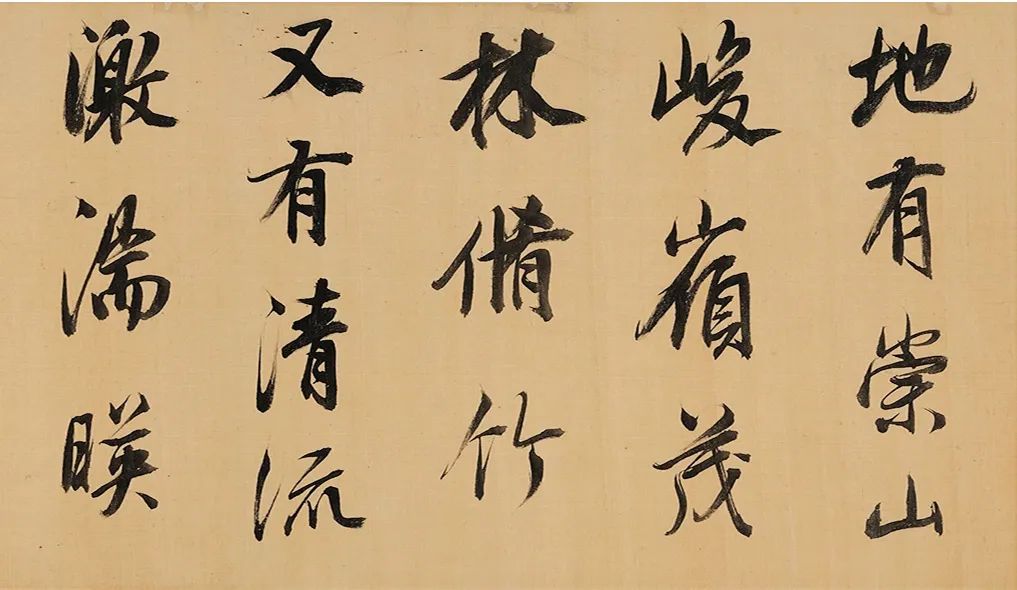 地有崇山
峻嶺茂
林脩竹
又有清流
激湍暎